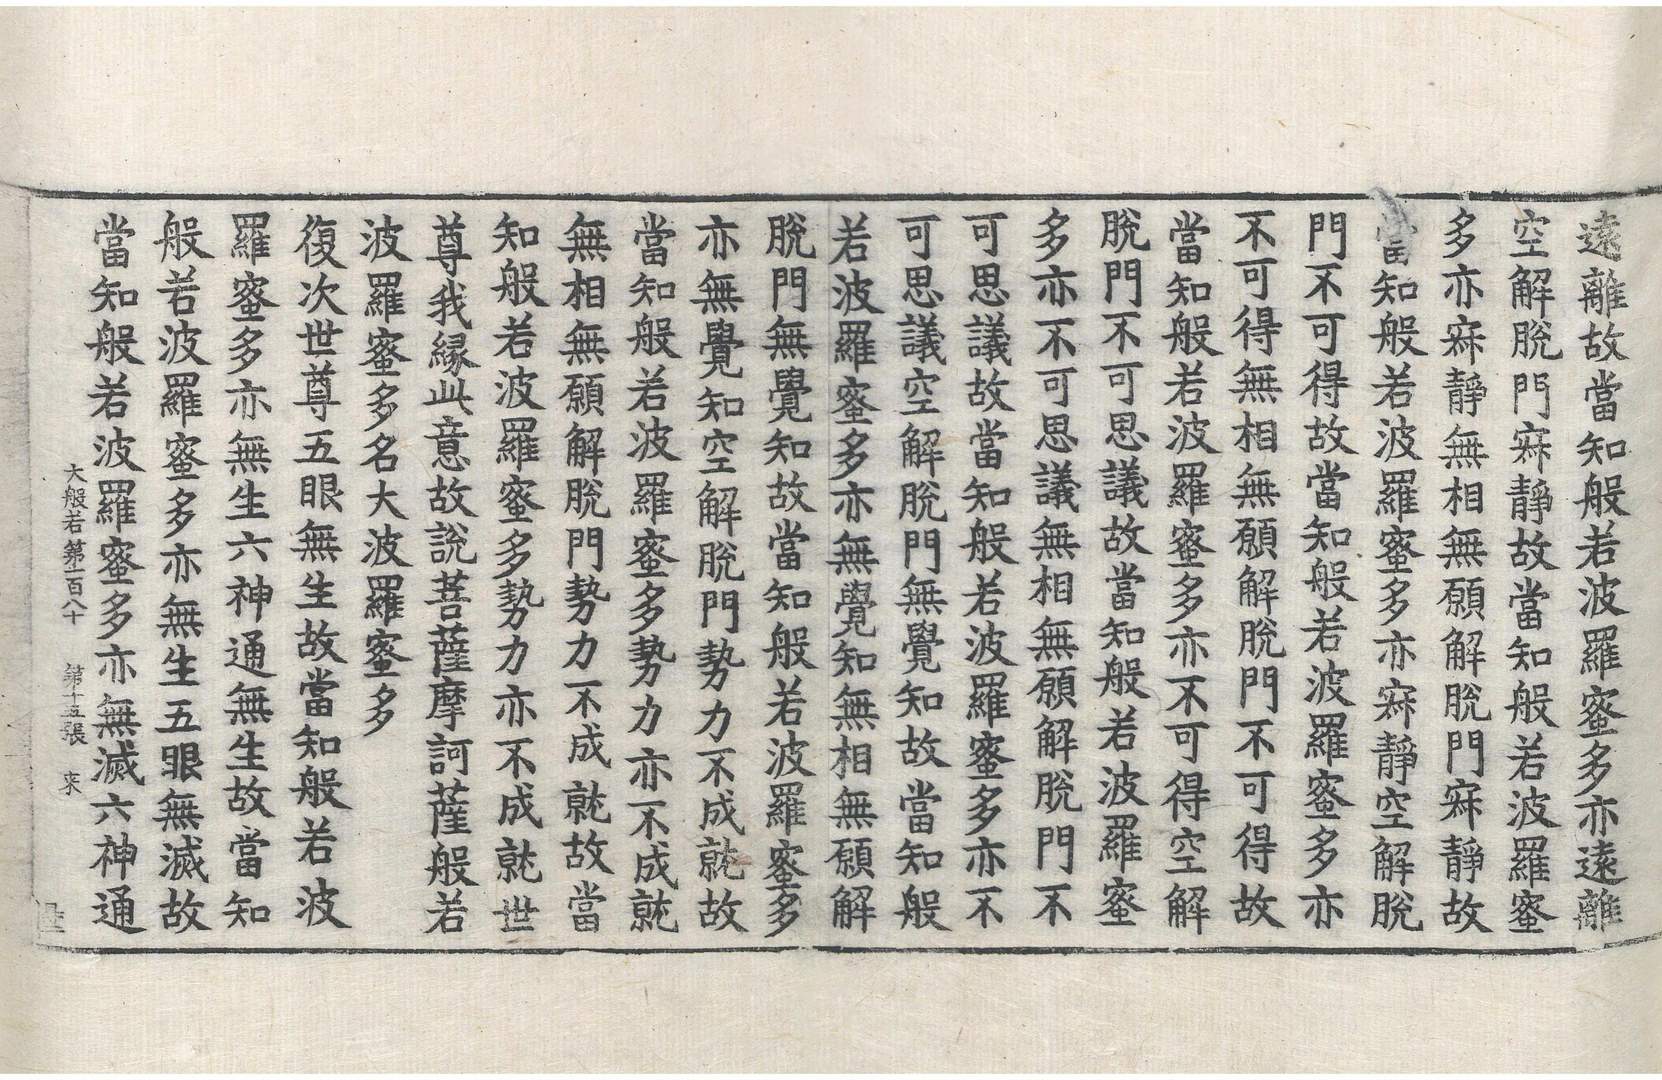 遠離故當知般若波羅蜜多亦遠離
空解脫門寂靜故當知般若波羅蜜
多亦寂靜無相無願解脫門寂靜故
當知般若波羅蜜多亦寂靜空解脫
門不可得故當知般若波羅蜜多亦
不可得無相無願解脫門不可得故
當知般若波羅蜜多亦不可得空解
脫門不可思議故當知般若波羅蜜
多亦不可思議無相無願解脫門不
可思議故當知般若波羅蜜多亦不
可思議空解脫門無覺知故當知般
若波羅蜜多亦無覺知無相無願解
脫門無覺知故當知般若波羅蜜多
亦無覺知空解脫門勢力不成就故
當知般若波羅蜜多勢力亦不成就
無相無願解脫門勢力不成就故當
知般若波羅蜜多勢力亦不成就世
尊我緣此意故說菩薩摩訶薩般若
波羅蜜多名大波羅蜜多
復次世尊五眼無生故當知般若波
羅蜜多亦無生六神通無生故當知
般若波羅蜜多亦無生五眼無滅故
當知般若波羅蜜多亦無滅六神通
大般若第一百八十 第十五張 來